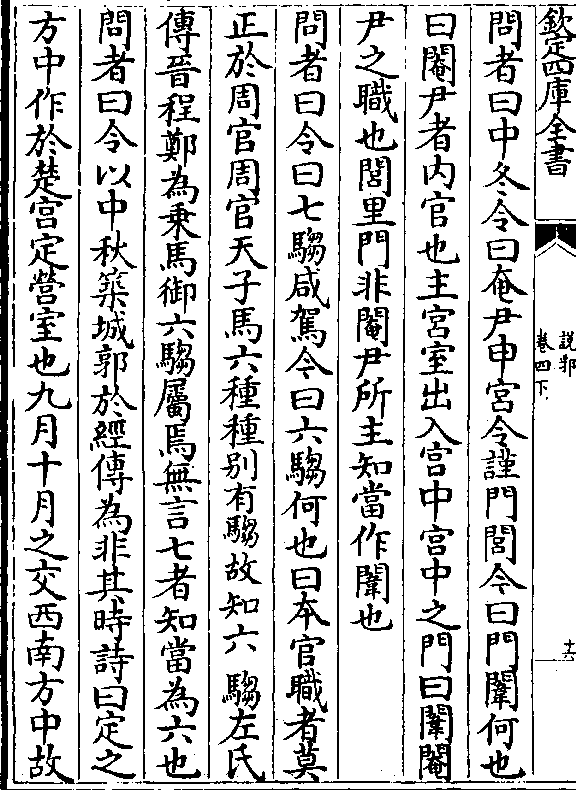 欽定四庫全書
說郛
卷四下
十六
問者曰中冬令曰奄尹申宮令謹門閭今曰門闈何也
曰閹尹者内官也主宮室出入宮中宮中之門曰闈閹
尹之職也閭里門非閹尹所主知當作闈也
問者曰令曰七騶咸駕今曰六騶何也曰本官職者莫
正於周官周官天子馬六種種别有騶故知六騶左氏
傳晉程鄭為乗馬御六騶屬焉無言七者知當為六也
問者曰令以中秋築城郭於經傳為非其時詩曰定之
方中作於楚宫定營室也九月十月之交西南方中故